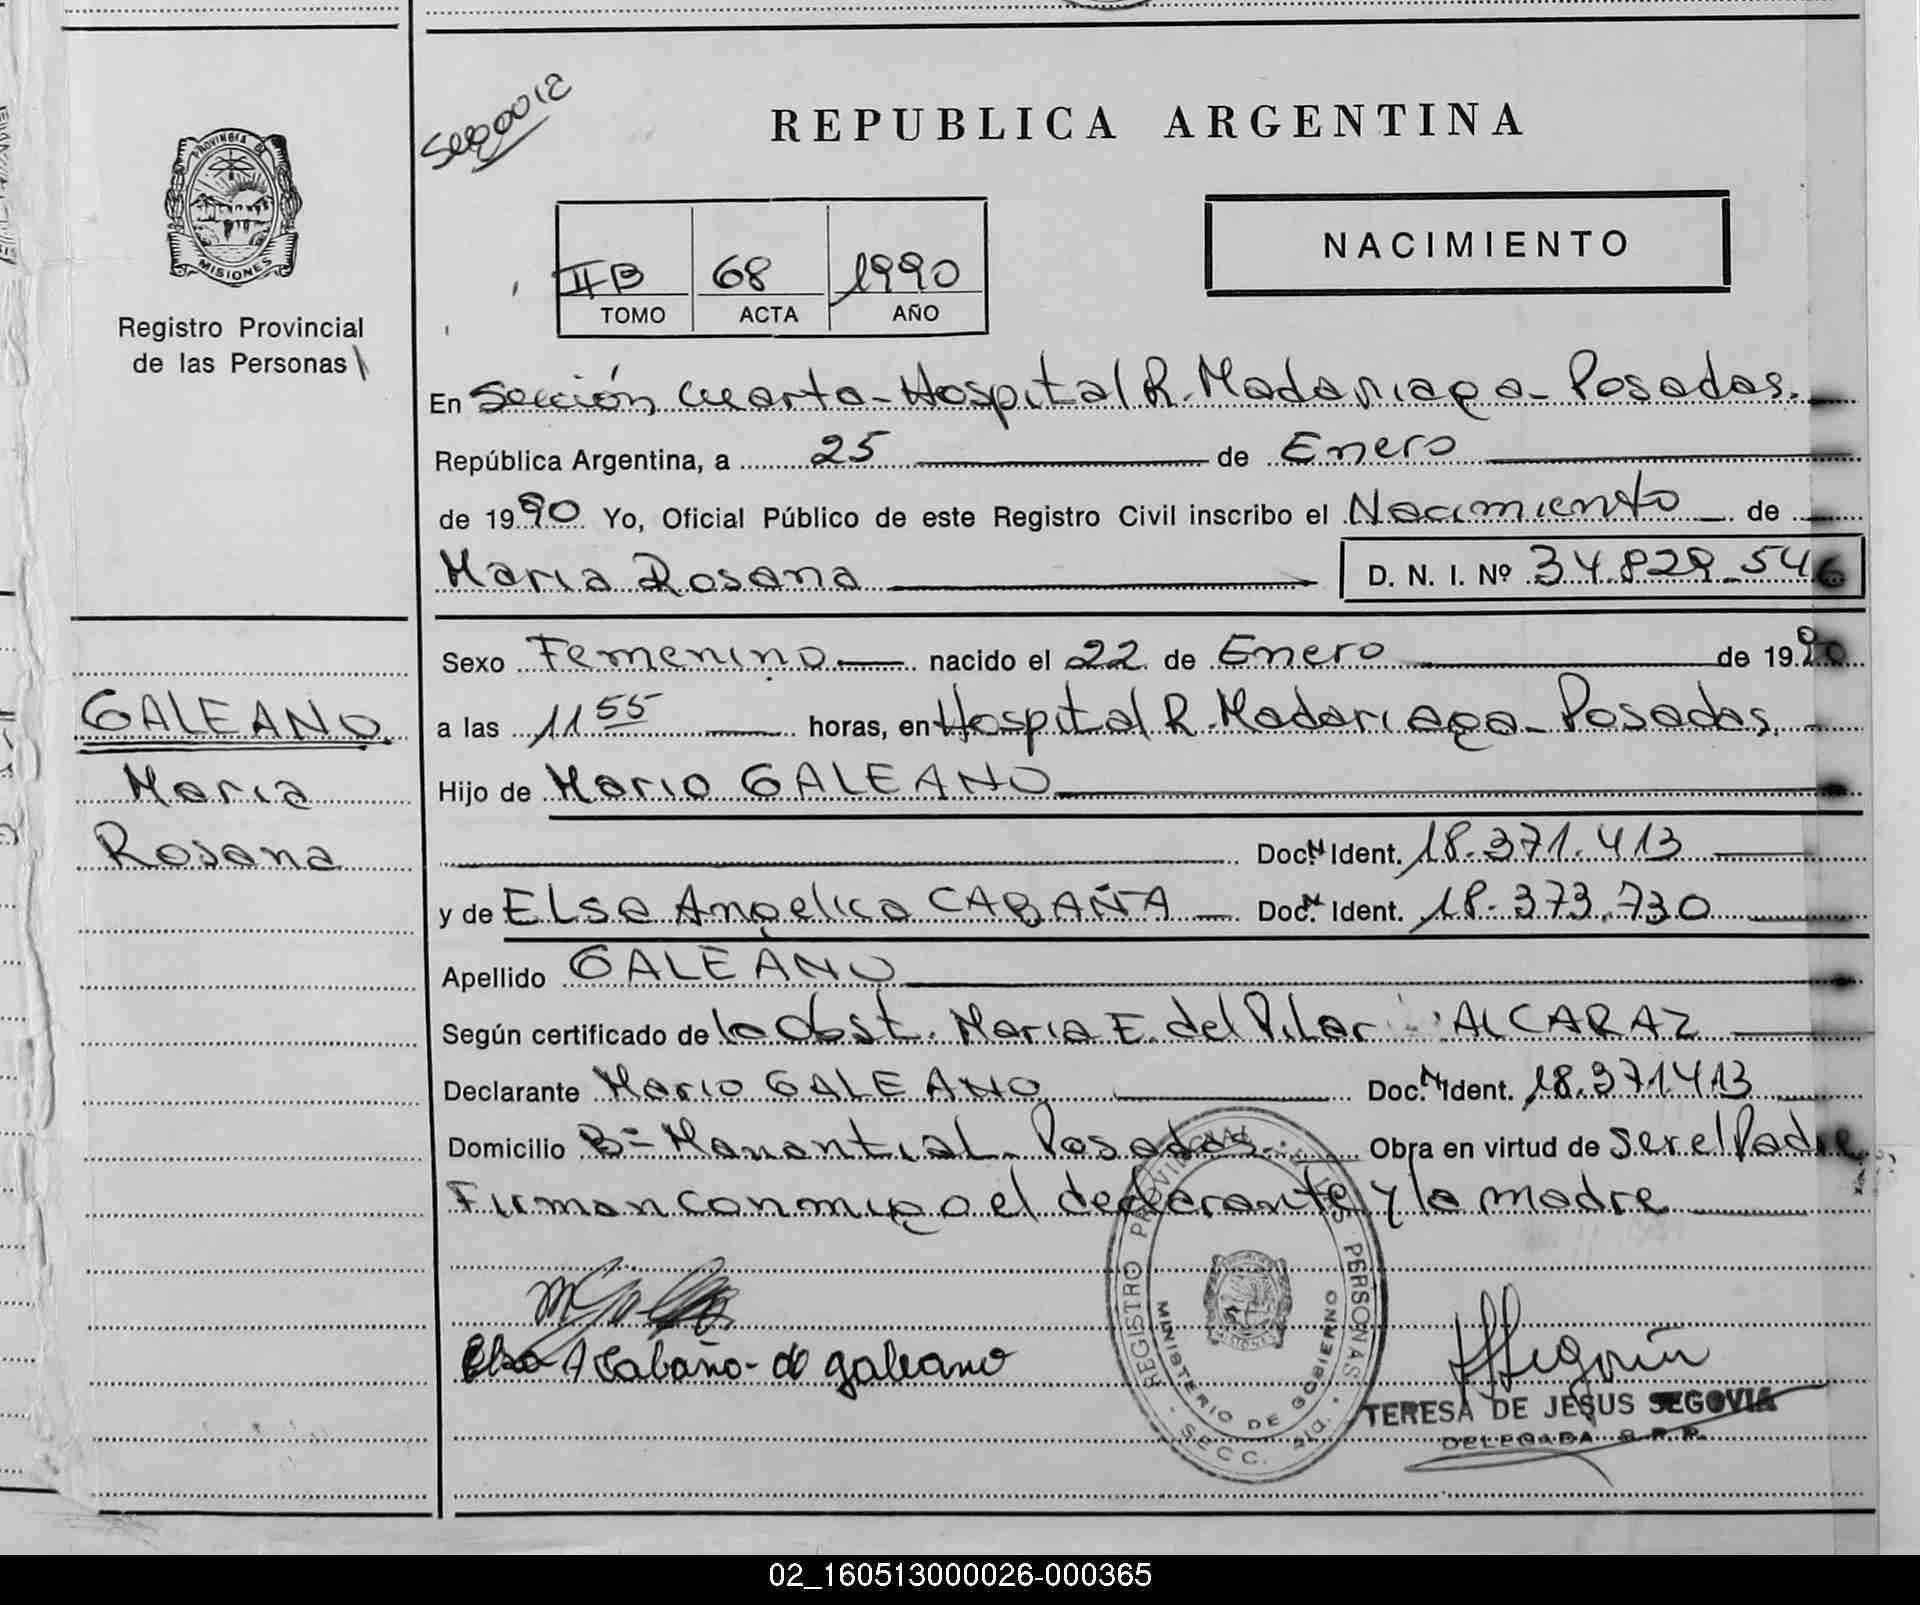 PROVINCIA DE
MISIONES
Registro Provincial
de las Personas
GALEANO
Maria
Rosana
REPUBLICA ARGENTINA
NACIMIENTO
IIB 68 1990
TOMO ACTA AÑO
En Sección Cuarta - Hospital R. Madariaga - Posadas.
República Argentina, a 25 de Enero
de 1990 Yo, Oficial Público de este Registro Civil inscribo el Nacimiento de
Maria Rosana D. N. I. Nº 34.829.546
Sexo Femenino nacido el 22 de Enero de 1990
a las 11 55 horas, en Hospital R. Madariaga - Posadas.
Hijo de Mario GALEANO
Doc. N Ident. 18.371.413
y de Elsa Angelica CABAÑA Doc. N Ident. 18.373.730
Apellido GALEANO
Según certificado de la Obst. Maria E. del Pilar ALCARAZ
Declarante Mario GALEANO Doc. N Ident. 18.371413
Domicilio Bº Manantial - Posadas. Obra en virtud de ser el Padre
Firman conmigo el declarante y la madre
Elsa A Cabaña de galeano
REGISTRO PROVINCIAL DE LAS PERSONAS
MINISTERIO DE GOBIERNO
SECC. 4ta.
TERESA DE JESUS SEGOVIA
DELEGADA R.P.P.
02_160513000026-000365